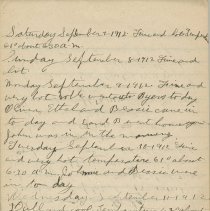 Saturday September 7-1912 Fine and hot Temp
61° about 6:30 a.m.
Sunday September 8-1912 Fine and
hot.
Monday September 9-1912. Fine and
very hot to day
Olive Ethel and Bessie came in
to day and went home
John was in in the morning
Tuesday September 10-1912 Fine
and very hot temperature 61° about
6:30 a.m. and Bessie were
in to day
Wednesday September 11-1912